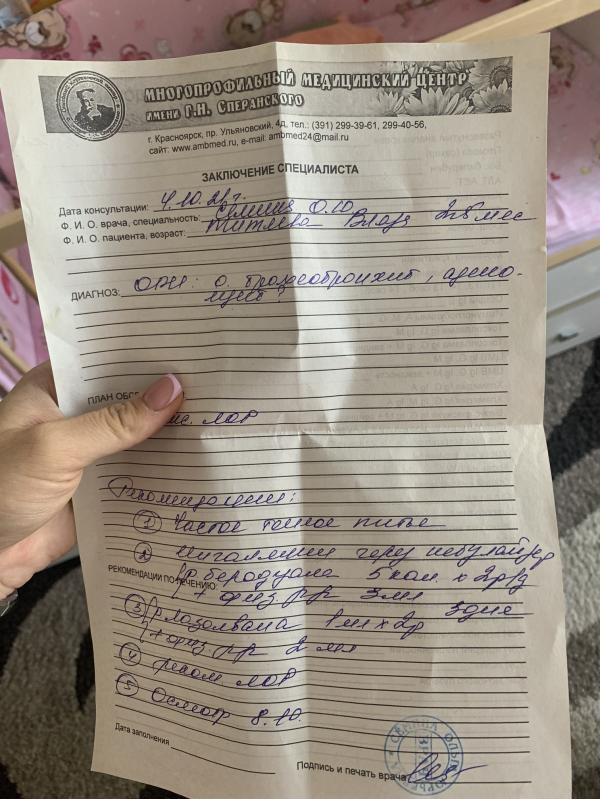 МНОГОПРОФИЛЬНЫЙ МЕДИЦИНСКИЙ ЦЕНТР
ИМЕНИ Г.Н. СПЕРАНСКОГО
г. Красноярск, пр. Ульяновский, 4д, тел.: (391) 299-39-61, 299-40-56,
сайт: www.ambmed.ru, e-mail: ambmed24@mail.ru
ЗАКЛЮЧЕНИЕ СПЕЦИАЛИСТА
Дата консультации: 4.10.21г.
Ф. И. О. врача, специальность: О.Ю.
Ф. И. О. пациента, возраст: Влада 2г8 мес
ДИАГНОЗ: О. трахеобронхит, адено-
идит?
ПЛАН ОБС
ЛОР
Рекомендации:
1 Частое теплое питье
2 ингаляции через небулайзер
р-р беродуала 5 кап. x 2р/д
РЕКОМЕНДАЦИИ ПО ЛЕЧЕНИЮ:
+ физ. р-р 3мл
3 р-р лазолвана 1 мл x 2р
+ физ. р-р 2 мл
4 ЛОР
5 Осмотр 8.10.
Дата заполнения
Подпись и печать врача